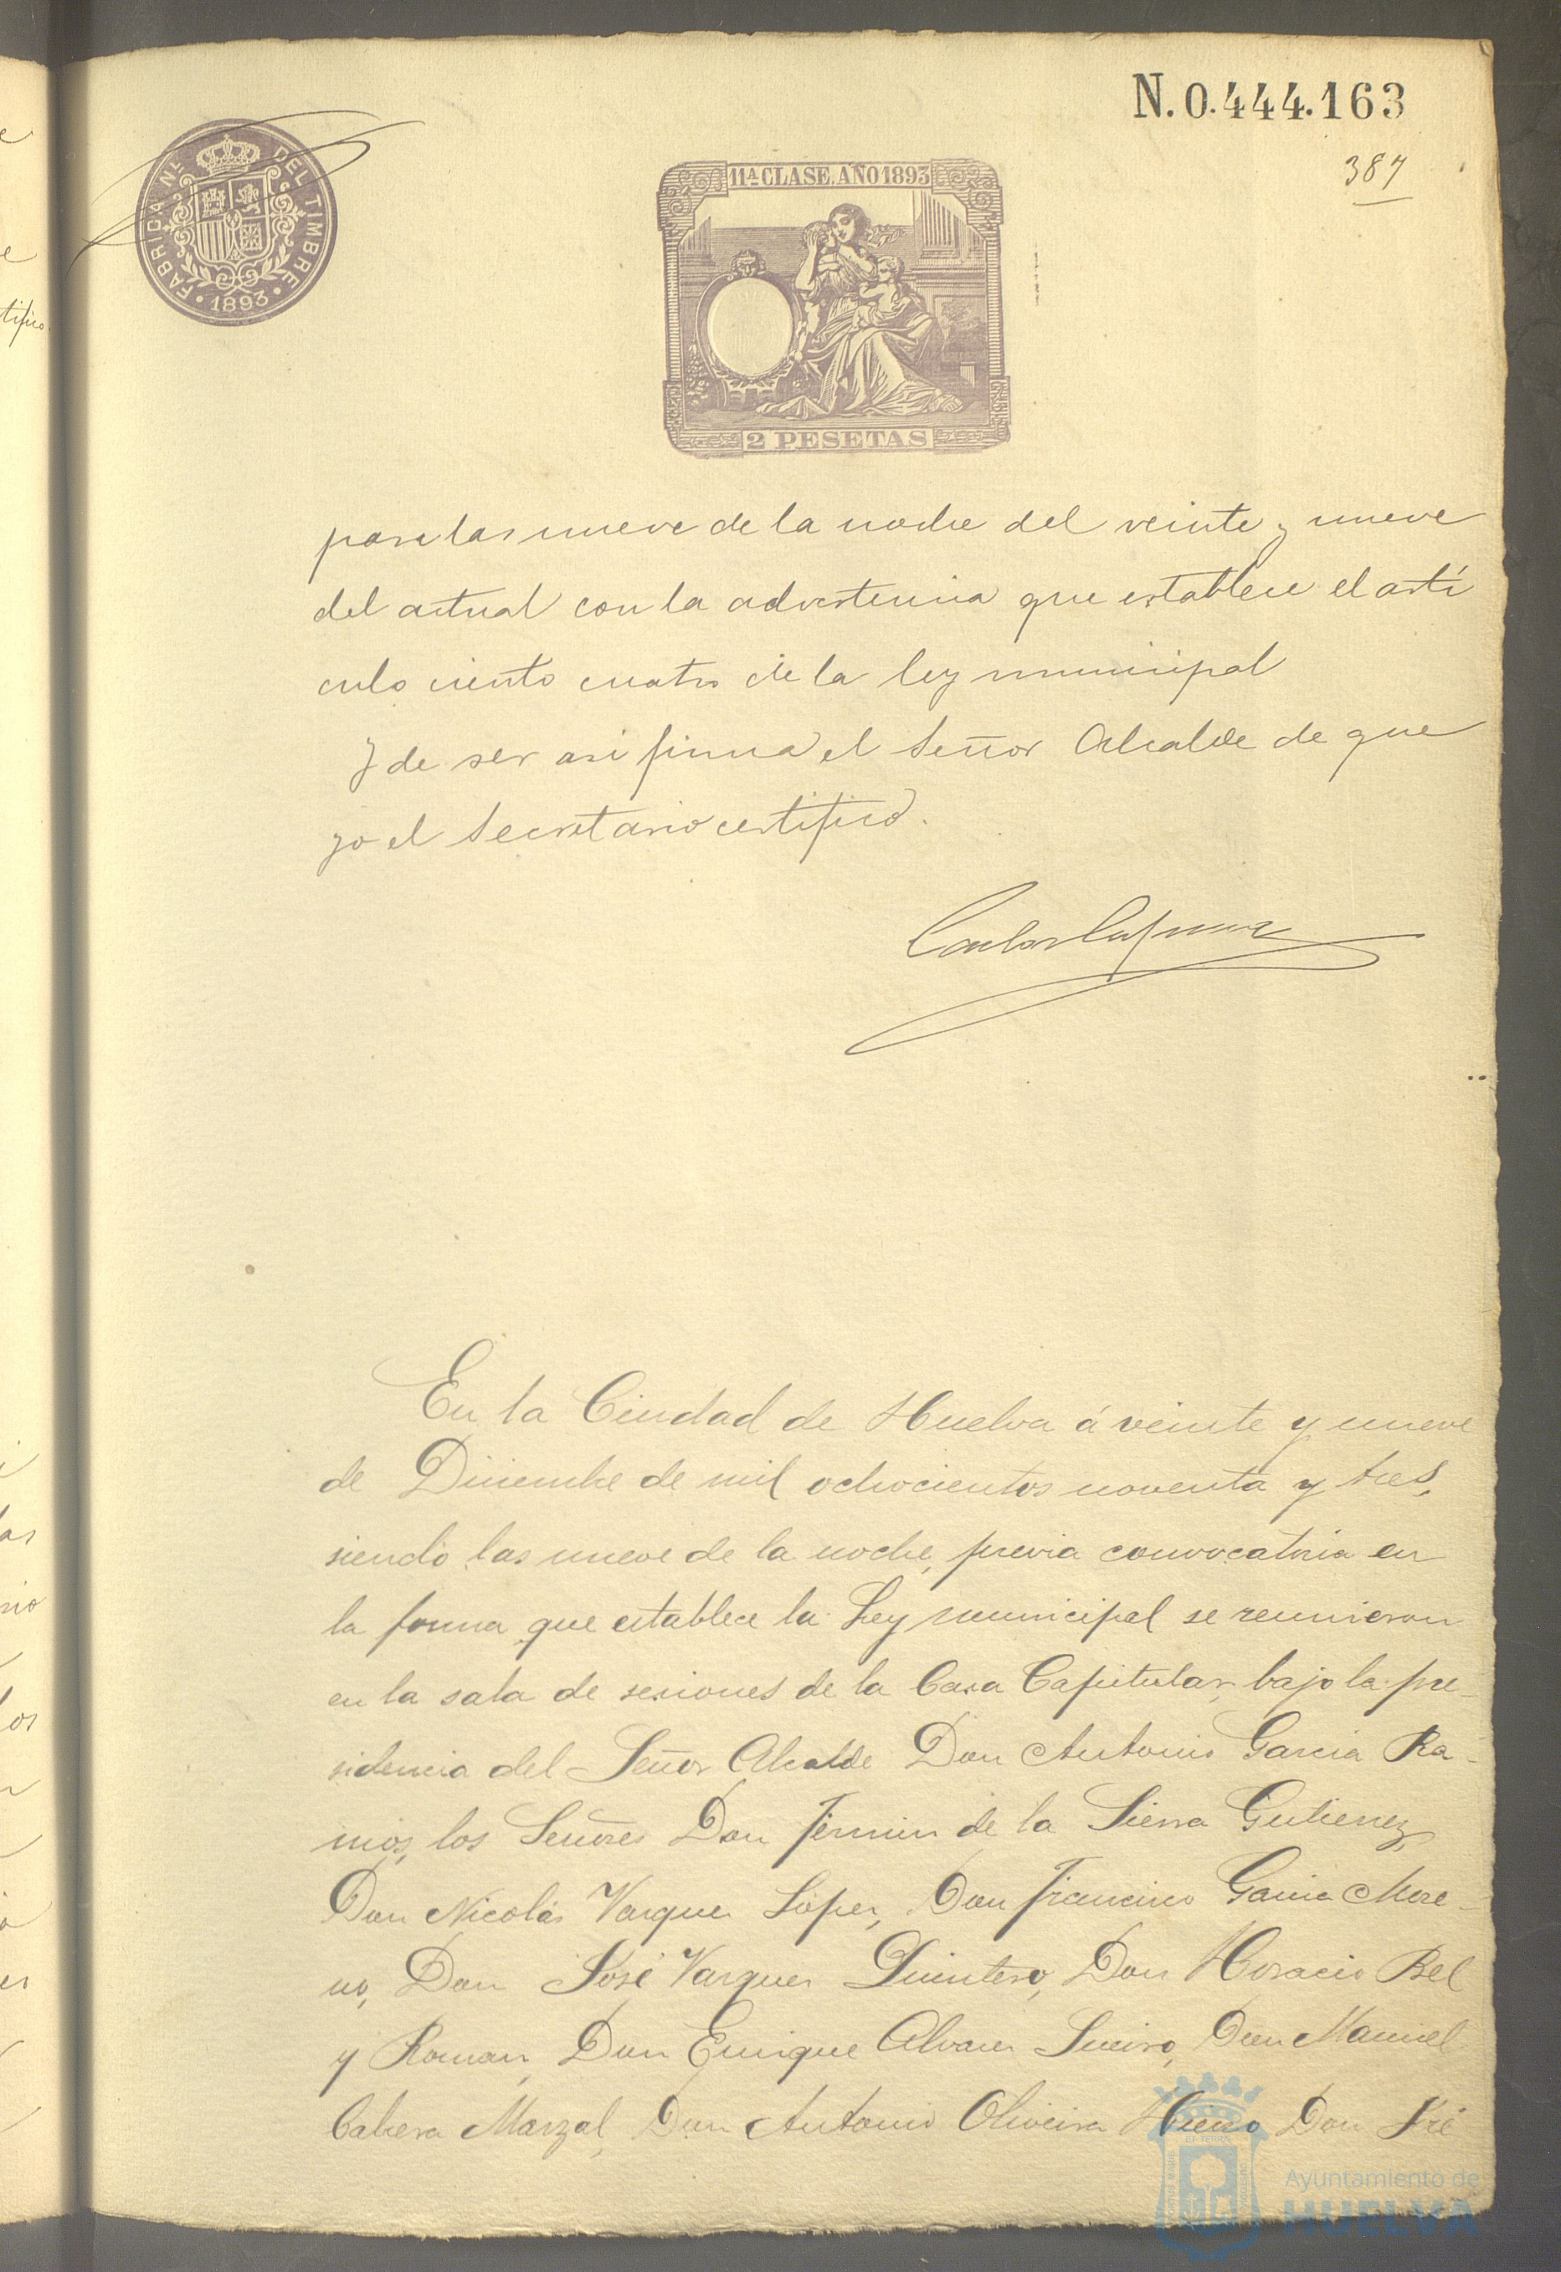 N. 0.444.163
387
FABRICA NL DEL TIMBRE
1893
11ª CLASE. AÑO 1893
2 PESETAS
para las nueve de la noche del veinte y nueve
del actual con la advertencia que establece el artí
culo ciento cuatro de la ley municipal
Y de ser asi firma el Señor Alcalde de que
yo el Secretario certifico.
En la Ciudad de Huelva á veinte y nueve
de Diciembre de mil ochocientos noventa y tres,
siendo las nueve de la noche, previa convocatoria en
la forma que establece la Ley municipal se reunieron
en la sala de sesiones de la Casa Capitular, bajo la pre-
sidencia del Señor Alcalde Don Antonio Garcia Ra-
mos, los Señores Don Fermin de la Sierra Gutierrez,
Don Nicolás Vazquez Lopez, Don Francisco Garcia More-
no, Don José Vazquez Quintero, Don Horacio Bel
y Roman, Don Enrique Alvarez Sueiro, Don Manuel
Cabrera Marzal, Don Antonio Oliveira Don José
Ayuntamiento de
HUELVA